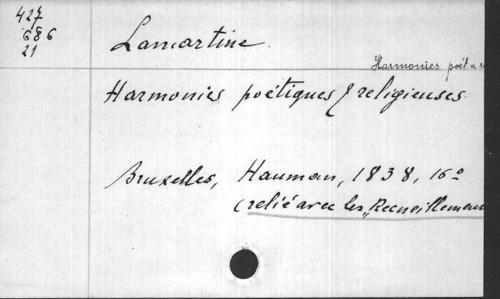 427
686
21
Lamartine.
Harmonies poét. &
Harmonies poétiques & religieuses.
Bruxelles, Hauman, 1838, 16o
(relié avec les „Recueillemen